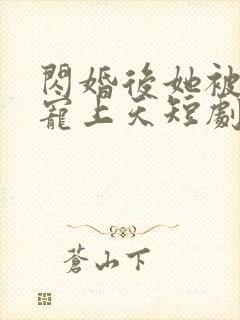 閃婚後她被
寵上天短劇
蒼山下